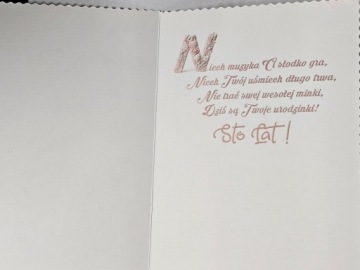 Niech muzyka Ci słodko gra,
Niech Twój uśmiech długo trwa,
Nie trać swej wesołej minki,
Dziś są Twoje urodzinki!
Sto Lat!